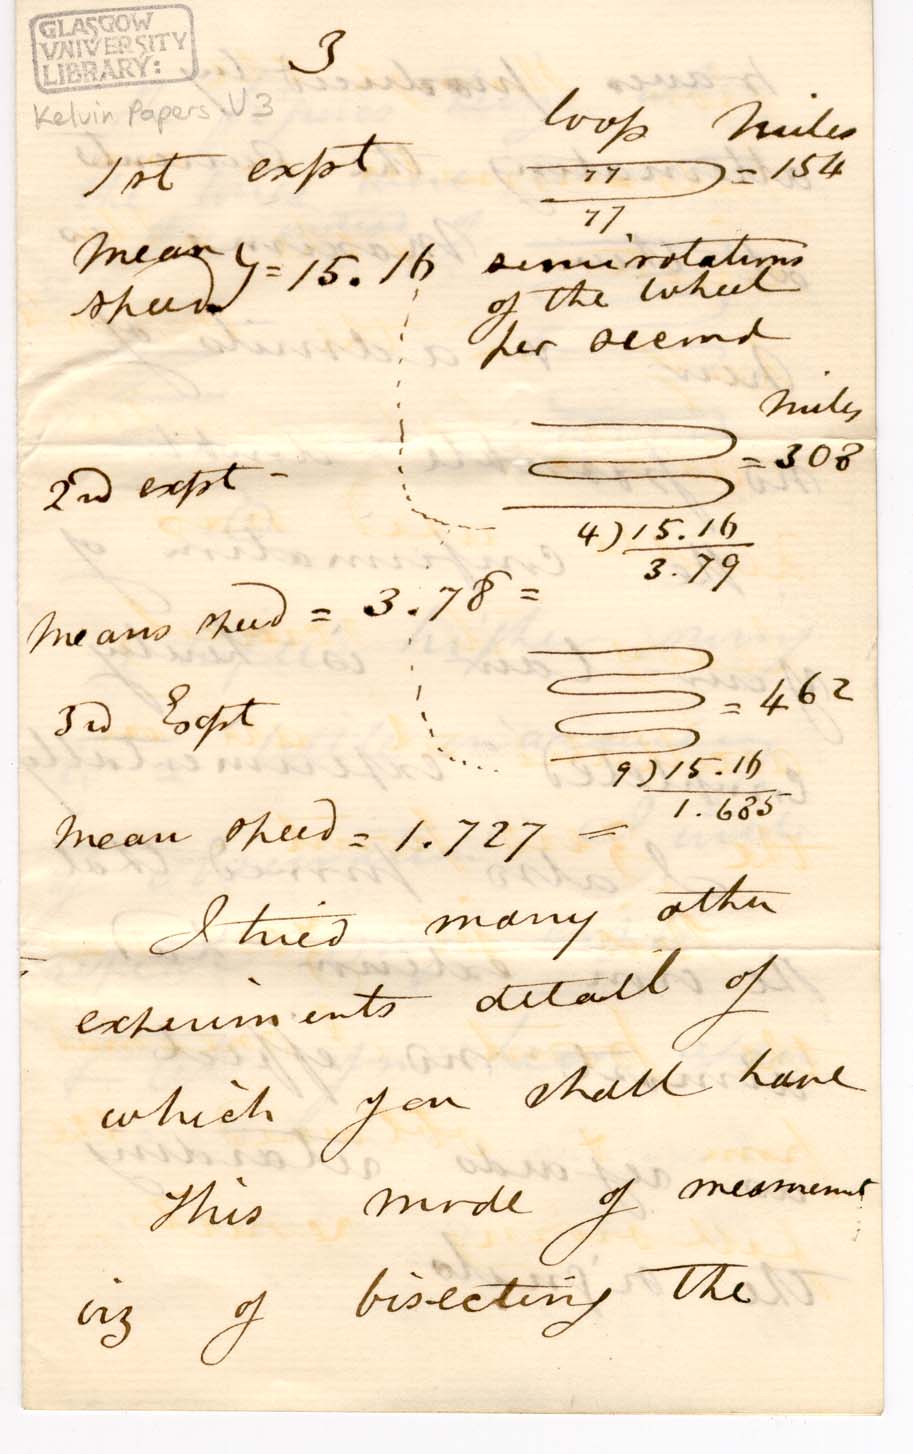 GLASGOW
UNIVERSITY
LIBRARY:
Kelvin Papers. V3
3
1st expt
loop miles
77
77
= 154
Mean speed } = 15.16 semi rotations
of the wheel
per second
miles
2nd expt -
= 308
4) 15.16
3.79
Means speed = 3.78 =
3rd Expt
= 462
9) 15.16
1.685
Mean speed = 1.727 =
I tried many other
experiments detail of
which you shall have
This mode of measurement
viz of bisecting the